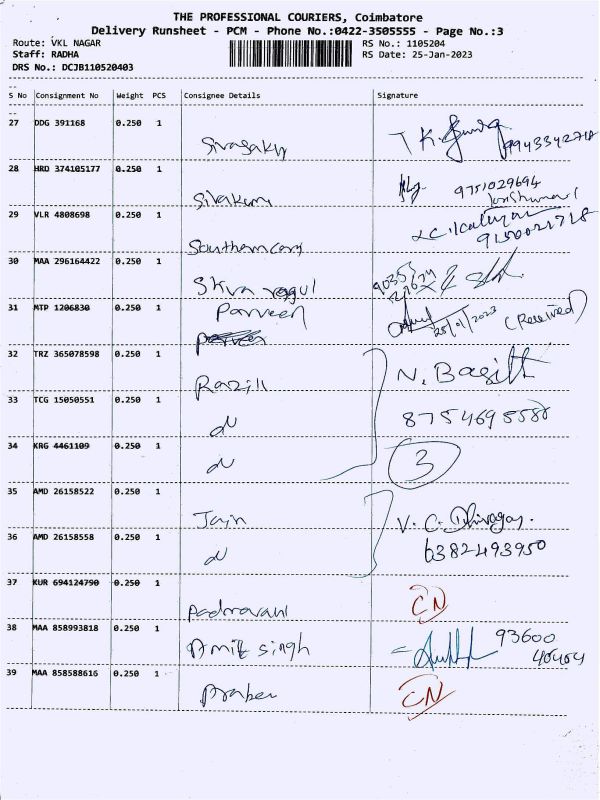 THE PROFESSIONAL COURIERS, Coimbatore
Delivery Runsheet - PCM - Phone No.:0422-3505555 - Page No.:3
Route: VKL NAGAR
RS No.: 1105204
Staff: RADHA
RS Date: 25-Jan-2023
DRS No.: DCJB110520403
--
S No Consignment No Weight PCS Consignee Details Signature
--
27 DDG 391168 0.250 1
Sivasakthi
28 HRD 374105177 0.250 1
9751029694
Sivakumar
29 VLR 4808698 0.250 1
Southern
30 MAA 296164422 0.250 1
Shiva ragul
31 MTP 1206830 0.250 1
Parveen
25/01/2023 (Received)
32 TRZ 365078598 0.250 1
N. Basith
Razill
33 TCG 15050551 0.250 1
8754695580
34 KRG 4461109 0.250 1
3
35 AMD 26158522 0.250 1
Jain
V. C. Dhivagar.
36 AMD 26158558 0.250 1
6382493950
37 KUR 694124790 0.250 1
CN
38 MAA 858993818 0.250 1
Amit Singh
93600
39 MAA 858588616 0.250 1
CN